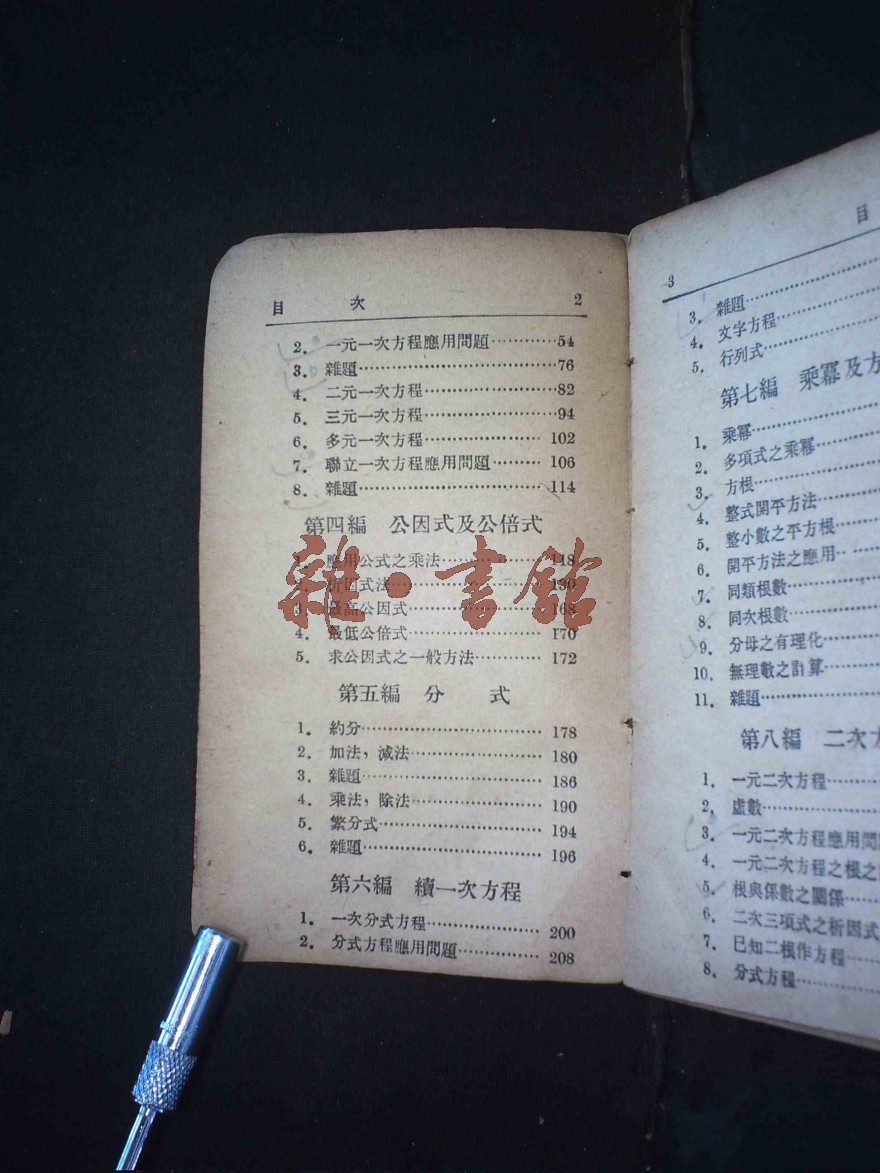 目 次 2
2. 一元一次方程應用問題…………54
3. 雜題……………………………76
4. 二元一次方程…………………82
5. 三元一次方程…………………94
6. 多元一次方程………………… 102
7. 聯立一次方程應用問題……… 106
8. 雜題……………………………114
第四編 公因式及公倍式
應用公式之乘法……………… 118
析因式法……………………… 130
3. 最高公因式…………………… 168
4. 最低公倍式…………………… 170
5. 求公因式之一般方法………… 172
第五編 分 式
1. 約分…………………………… 178
2. 加法，減法…………………… 180
3. 雜題…………………………… 186
4. 乘法，除法…………………… 190
5. 繁分式………………………… 194
6. 雜題…………………………… 196
第六編 續一次方程
1. 一次分式方程………………… 200
2. 分式方程應用問題…………… 208
雜·書館
目
3
3. 雜題……………………
4. 文字方程………………
5. 行列式…………………
第七編 乘冪及方
1. 乘冪……………………
2. 多項式之乘冪…………
3. 方根……………………
4. 整式開平方法…………
5. 整小數之平方根………
6. 開平方法之應用‥
7. 同類根數………………
8. 同次根數………………
9. 分母之有理化…………
10. 無理數之計算…………
11. 雜題……………………
第八編 二次方
1. 一元二次方程…………
2. 虛數……………………
3. 一元二次方程應用問題
4. 一元二次方程之根之
5. 根與係數之關係………
6. 二次三項式之析因式
7. 已知二根作方程………
8. 分式方程………………